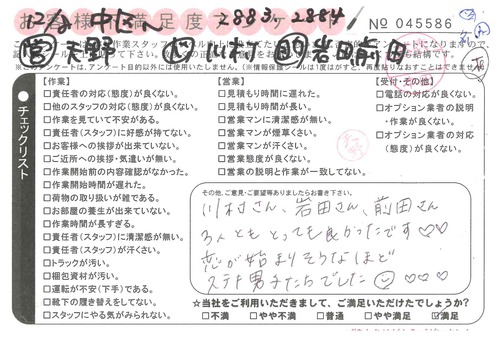 お客様満足度アンケート
12/2 中区 2883ケ2884
No 045586
営 天野 川村 岩田前田
チェックリスト
【作業】
□責任者の対応(態度)が良くない。
□他のスタッフの対応(態度)が良くない。
□作業を見ていて不安がある。
□責任者(スタッフ)に好感が持てない。
□お客様への挨拶が出来ていない。
□ご近所への挨拶・気遣いが無い。
□作業開始前の内容確認がなかった。
□作業開始時間が遅れた。
□荷物の取り扱いが雑である。
□お部屋の養生が出来ていない。
□作業時間が長すぎる。
□責任者(スタッフ)に清潔感が無い。
□責任者(スタッフ)が汗くさい。
□トラックが汚い。
□梱包資材が汚い。
□運転が不安(下手)である。
□靴下の履き替えをしてない。
□スタッフにやる気がみられない。
【営業】
□見積もり時間に遅れた。
□見積もり時間が長い。
□営業マンに清潔感が無い。
□営業マンが煙草くさい。
□営業マンが汗くさい。
□営業態度が良くない。
□営業の説明と作業が一致してない。
【受付・その他】
□電話の対応が良くない。
□オプション業者の説明
・作業が良くない。
□オプション業者の対応
(態度)が良くない。
その他、ご意見・ご要望等ありましたらお書き下さい。
川村さん、岩田さん、前田さん
3人とも とっても良かったです♡♡
恋が始まりそうなほど
ステキ男子たちでした ♡♡♡♡
☆当社をご利用いただきまして、ご満足いただけたでしょうか?
□不満 □やや不満 □普通 □やや満足 ☑満足